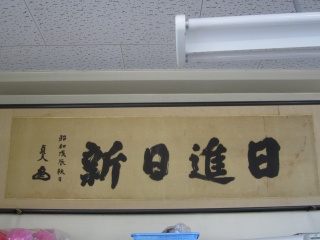 日進日新
昭和戊辰秋日